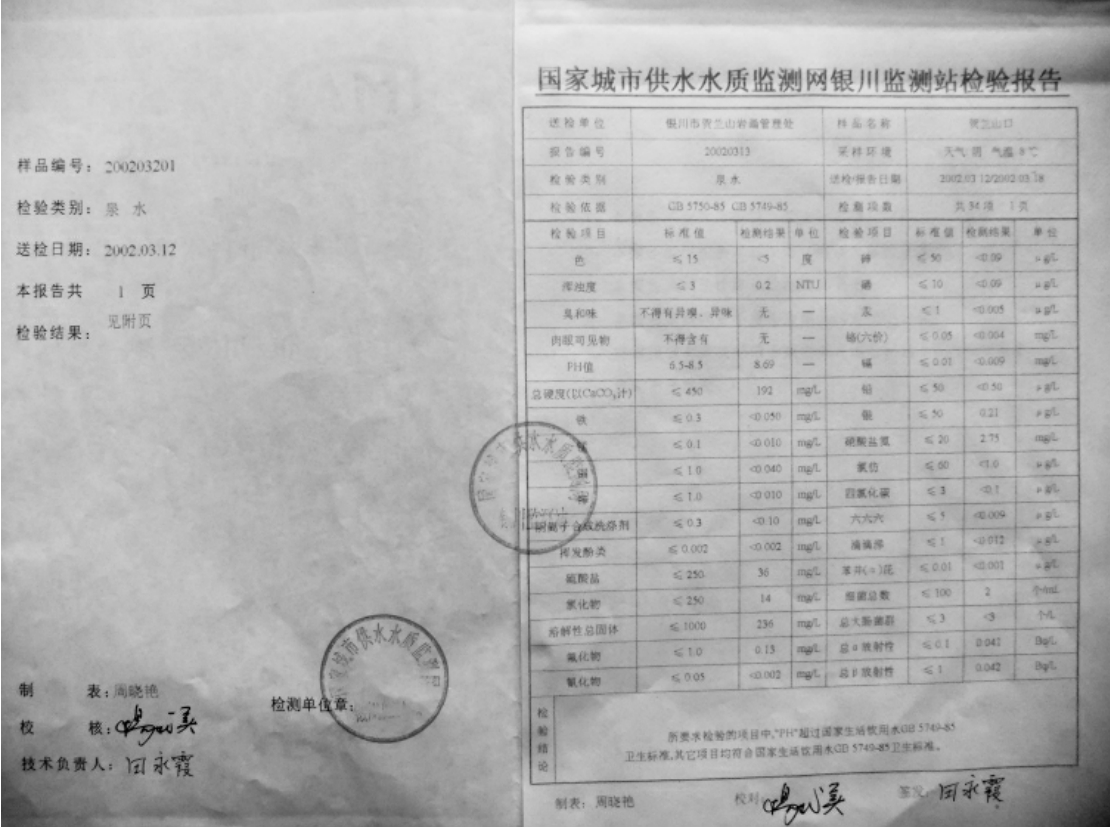 样品编号: 200203201
检验类别: 泉 水
送检日期: 2002.03.12
本报告共 1 页
检验结果: 见附页
制 表: 周晓艳
校 核:
检测单位章:
技术负责人: 田永霞
国家城市供水水质监测网银川监测站检验报告
送检单位 银川市贺兰山岩画管理处 样品名称 贺兰山口
报告编号 20020313 采样环境 天气 阴 气温 8℃
检验类别 泉水 送检/报告日期 2002.03.12/2002.03.18
检验依据 GB 5750-85 GB 5749-85 检测项数 共34项 1页
检验项目 标准值 检测结果 单位 检验项目 标准值 检测结果 单位
色 ≤15 <5 度 砷 ≤50 <0.09 μg/L
浑浊度 ≤3 0.2 NTU 硒 ≤10 <0.09 μg/L
臭和味 不得有异嗅、异味 无 — 汞 ≤1 <0.005 μg/L
肉眼可见物 不得含有 无 — 铬(六价) ≤0.05 <0.004 mg/L
PH值 6.5-8.5 8.69 — 镉 ≤0.01 <0.009 mg/L
总硬度(以CaCO₃计) ≤450 192 mg/L 铅 ≤50 <0.50 μg/L
铁 ≤0.3 <0.050 mg/L 银 ≤50 0.21 μg/L
≤0.1 <0.010 mg/L 硝酸盐氮 ≤20 2.75 mg/L
≤1.0 <0.040 mg/L 氯仿 ≤60 <1.0 μg/L
≤1.0 <0.010 mg/L 四氯化碳 ≤3 <0.1 μg/L
阴离子合成洗涤剂 ≤0.3 <0.10 mg/L 六六六 ≤5 <0.009 μg/L
挥发酚类 ≤0.002 <0.002 mg/L 滴滴涕 ≤1 <0.012 μg/L
硫酸盐 ≤250 36 mg/L 苯并(α)芘 ≤0.01 <0.001 μg/L
氯化物 ≤250 14 mg/L 细菌总数 ≤100 2 个/mL
溶解性总固体 ≤1000 236 mg/L 总大肠菌群 ≤3 <3 个/L
氟化物 ≤1.0 0.13 mg/L 总α放射性 ≤0.1 0.041 Bq/L
氰化物 ≤0.05 <0.002 mg/L 总β放射性 ≤1 0.042 Bq/L
检验结论 所要求检验的项目中,"PH"超过国家生活饮用水GB 5749-85
卫生标准,其它项目均符合国家生活饮用水GB 5749-85卫生标准。
制表: 周晓艳 校对: 签发: 田永霞